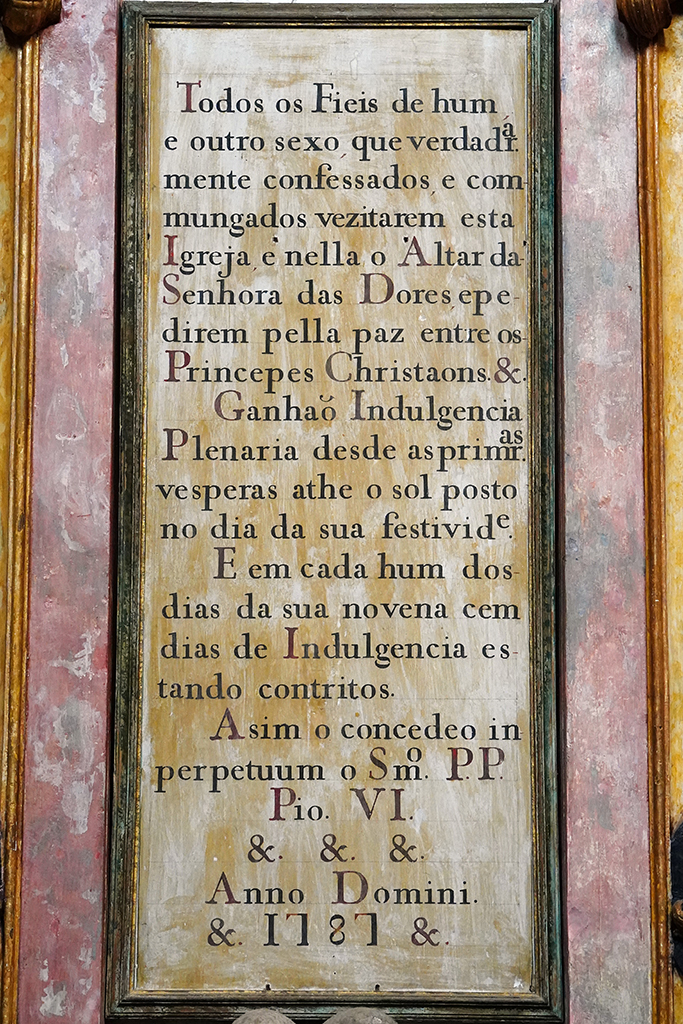 Todos os Fieis de hum
e outro sexo, que verdadr.ª
mente confessados, e com-
mungados vezitarem esta
Igreja, e nella o Altar da
Senhora das Dores e pe-
direm pella paz entre os
Princepes Christaons. &.
Ganhaõ Indulgencia
Plenaria desde as primr.as
vesperas athe o sol posto
no dia da sua festivid.e
E em cada hum dos
dias da sua novena cem
dias de Indulgencia es-
tando contritos.
Asim o concedeo in
perpetuum o Sm.o P.P.
Pio. VI.
&. &. &.
Anno Domini.
&. 1787 &.